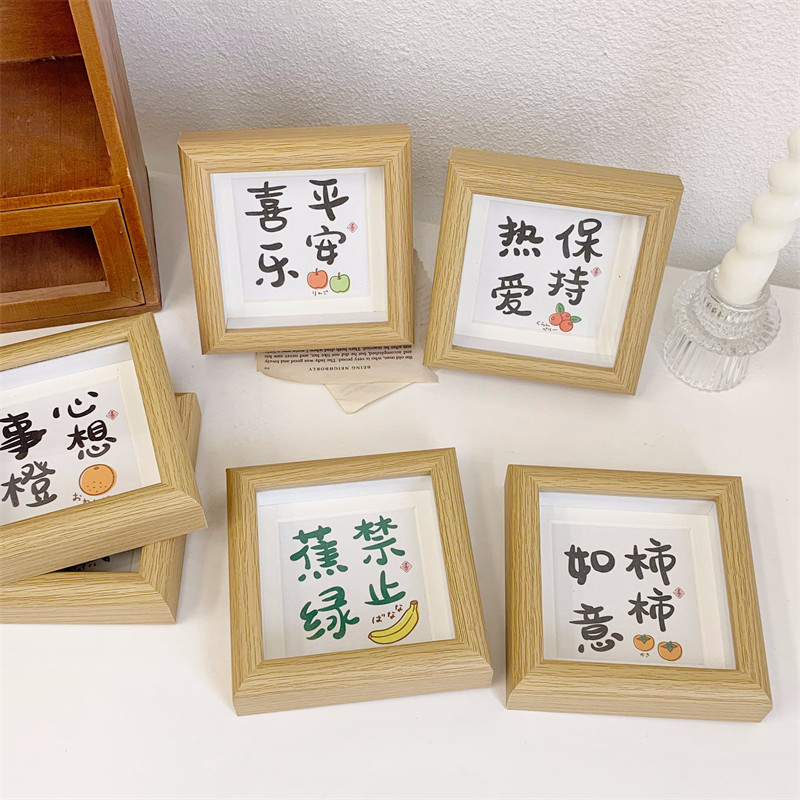 平安
喜乐
りんご
保持
热爱
くらん
べりー
BEING NEIGHBORLY
心想
事橙
禁止
蕉绿
ばなな
柿柿
如意
かき